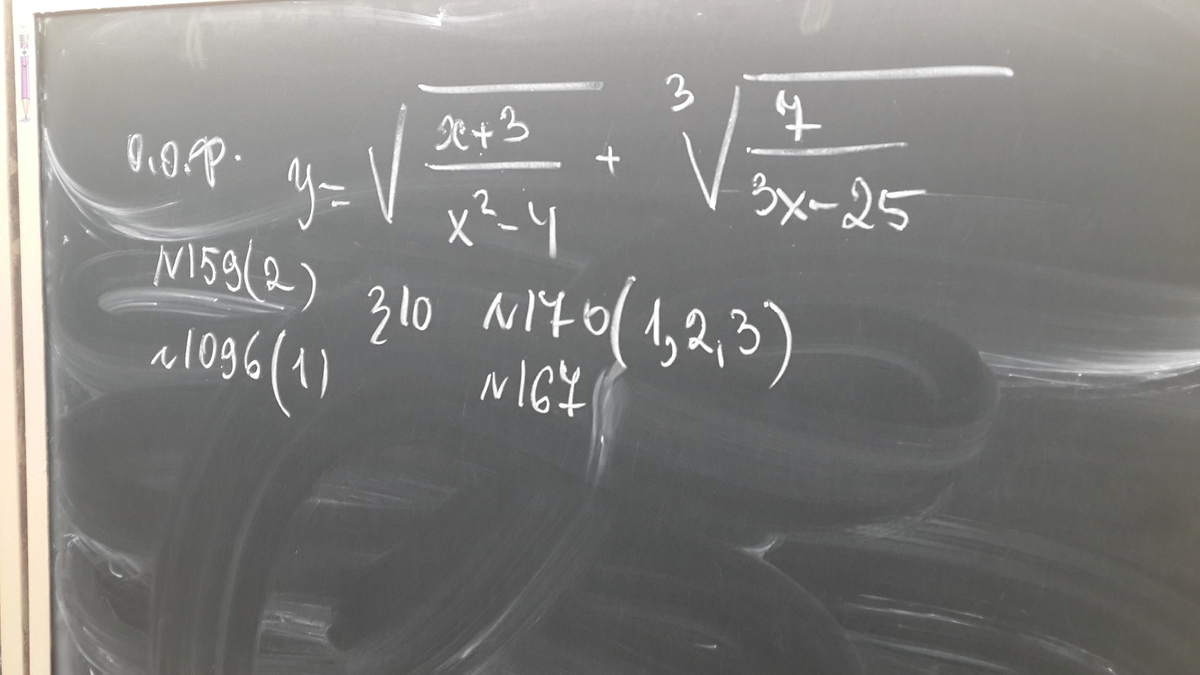 О.О.Ф. y = √((x+3)/(x²-4)) + ³√(7/(3x-25))
№159(2)
№1096(1)
§10 №170(1,2,3)
№167